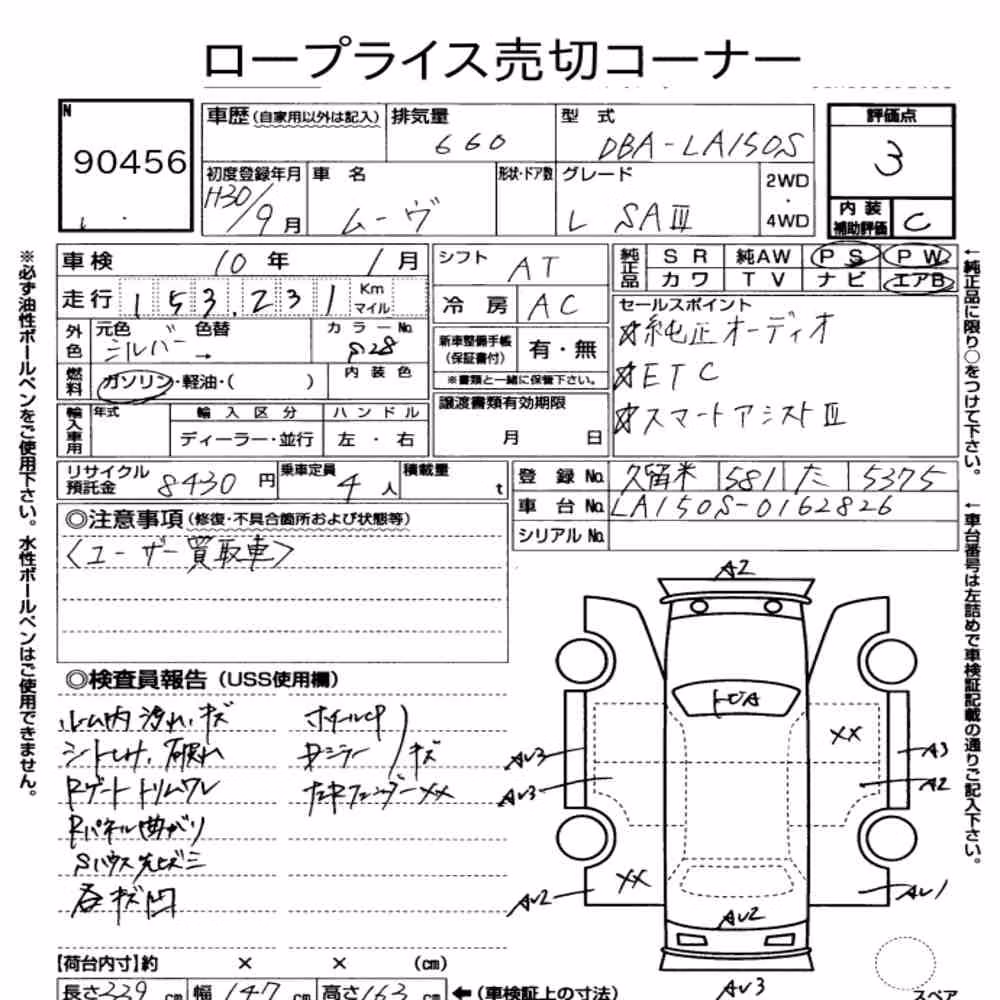 ロープライス売切コーナー
N
90456
車歴 (自家用以外は記入) 排気量 660 型式 DBA-LA150S
評価点 3
内装補助評価 C
初度登録年月 H30/9月 車名 ムーヴ 形状・ドア数 グレード L SAⅢ 2WD・4WD
車検 10年 1月
走行 153,231 Km マイル
外色 元色 シルバー 色替 → カラーNo. S28
燃料 ガソリン・軽油・( ) 内装色
輸入車用 年式 輸入区分 ディーラー・並行 ハンドル 左・右
シフト AT
冷房 AC
新車整備手帳(保証書付) 有・無
※書類と一緒に保管下さい。
譲渡書類有効期限
月 日
純正品 SR 純AW PS PW
カワ TV ナビ エアB
セールスポイント
☆純正オーディオ
☆ETC
☆スマートアシストⅢ
リサイクル預託金 8430円 乗車定員 4人 積載量 t
登録No. 久留米 581 た 5375
車台No. LA150S-0162826
シリアルNo.
◎注意事項 (修復・不具合箇所および状態等)
〈ユーザー買取車〉
◎検査員報告 (USS使用欄)
ルーム内汚れ、キズ
シートコゲ、破れ
Rゲートトリムワレ
Rパネル曲がり
Sハウス先ヒズミ
各キズ凹
ホイールCP
キズ
左FフェンダーXX
A2
XX
AU3
AU3
A3
A2
XX
AU2
AU2
AU1
AU3
【荷台内寸】約 × × (cm)
長さ339cm 幅147cm 高さ163cm ←(車検証上の寸法)
スペア
※必ず油性ボールペンをご使用下さい。水性ボールペンはご使用できません。
←純正品に限り○をつけて下さい。
←車台番号は左詰めで車検証記載の通りご記入下さい。